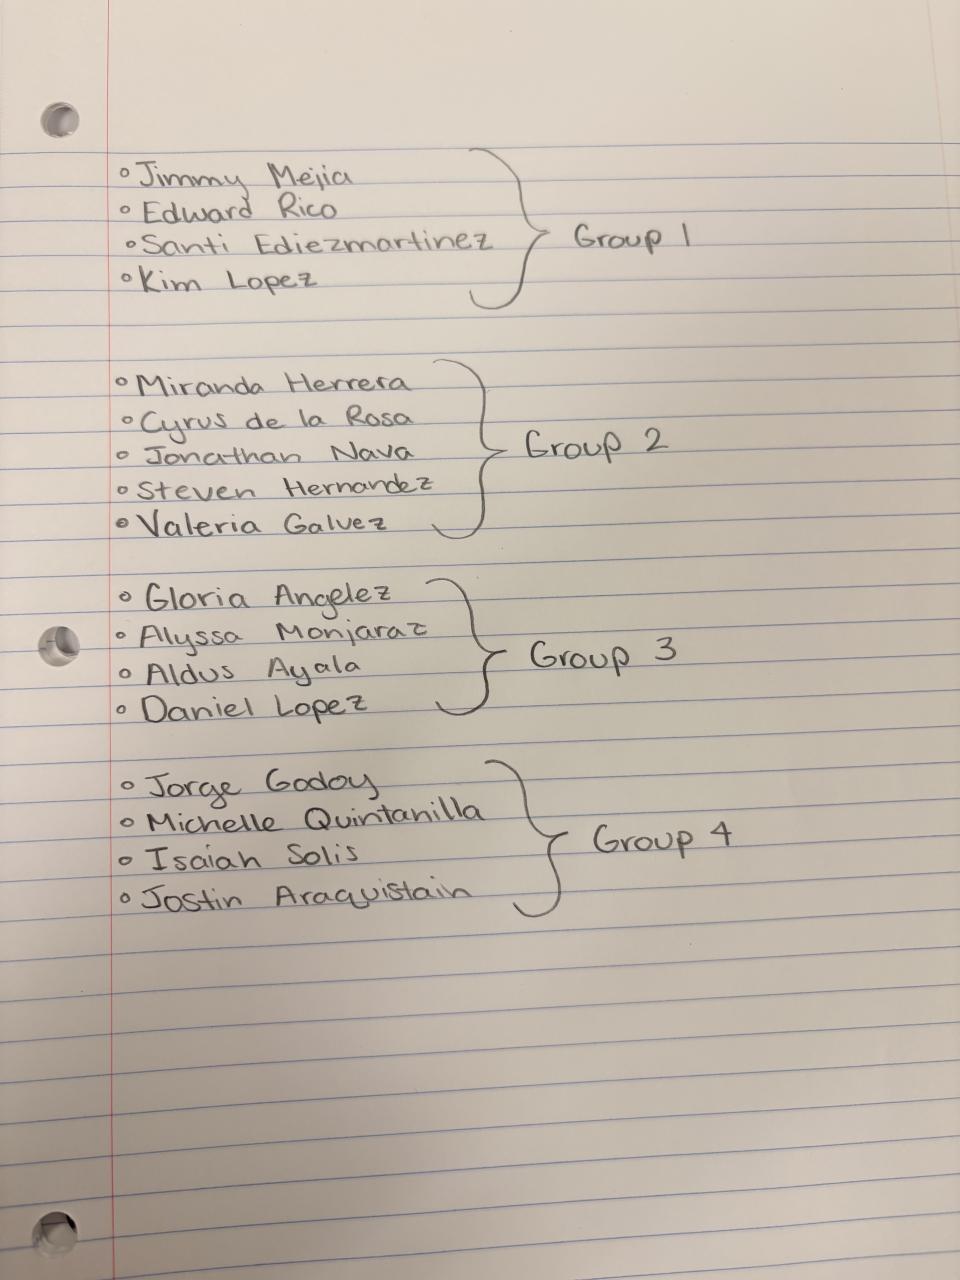 ◦ Jimmy Mejia
◦ Edward Rico
◦ Santi Ediezmartinez
◦ Kim Lopez
Group 1
◦ Miranda Herrera
◦ Cyrus de la Rosa
◦ Jonathan Nava
◦ Steven Hernandez
◦ Valeria Galvez
Group 2
◦ Gloria Angelez
◦ Alyssa Monjaraz
◦ Aldus Ayala
◦ Daniel Lopez
Group 3
◦ Jorge Godoy
◦ Michelle Quintanilla
◦ Isaiah Solis
◦ Jostin Araquistain
Group 4